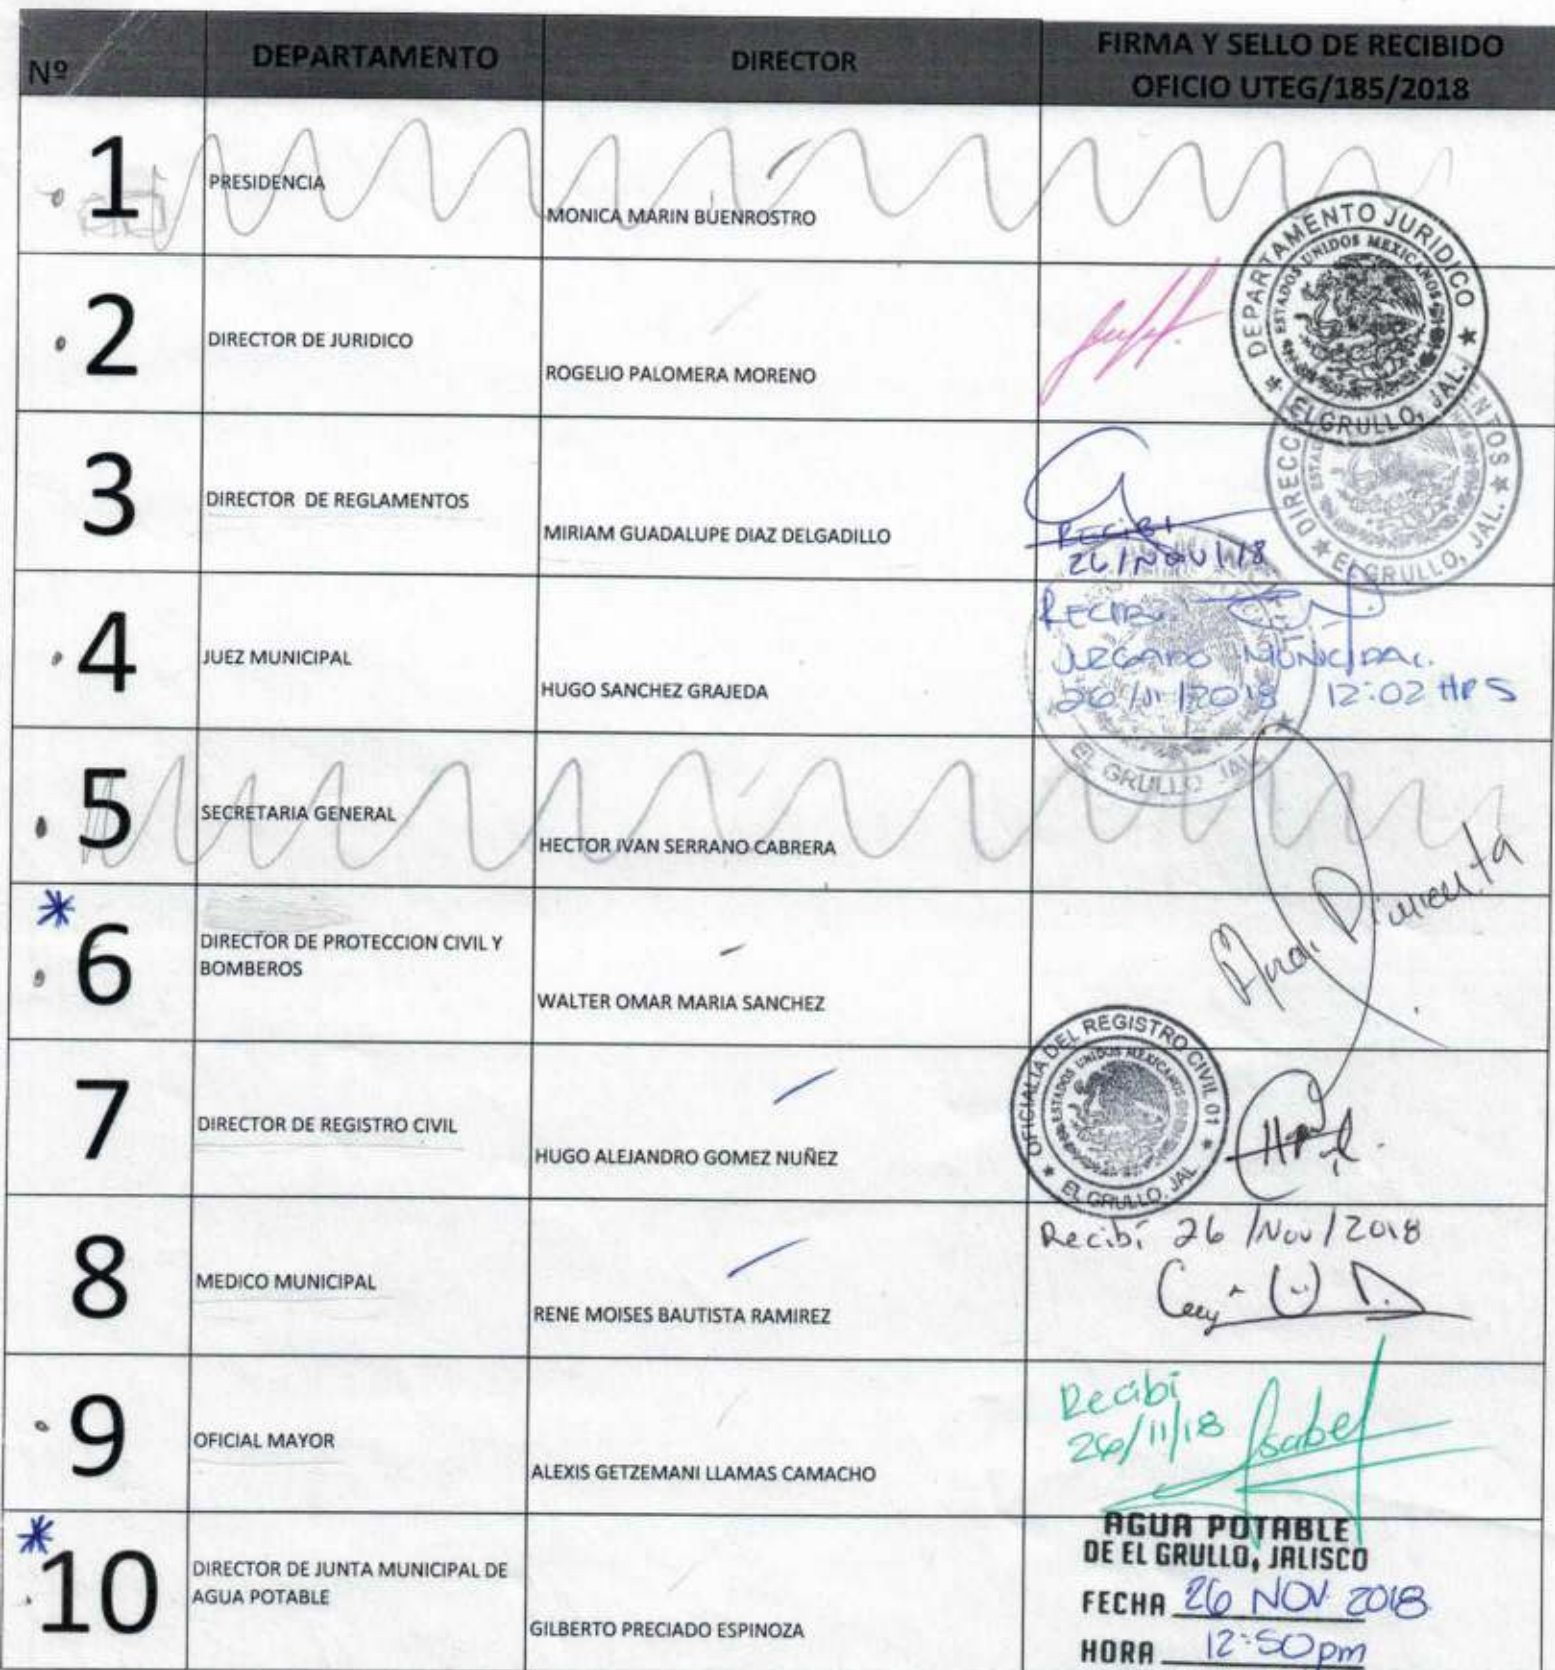 Nº DEPARTAMENTO DIRECTOR FIRMA Y SELLO DE RECIBIDO
OFICIO UTEG/185/2018
1 PRESIDENCIA
MONICA MARIN BUENROSTRO
DEPARTAMENTO JURIDICO
ESTADOS UNIDOS MEXICANOS
EL GRULLO, JAL.
2 DIRECTOR DE JURIDICO
ROGELIO PALOMERA MORENO
3 DIRECTOR DE REGLAMENTOS
MIRIAM GUADALUPE DIAZ DELGADILLO
EL GRULLO, JAL.
RECIBI
26/NOV/18
4 JUEZ MUNICIPAL
HUGO SANCHEZ GRAJEDA
RECIBI
JUZGADO MUNICIPAL.
26/11/2018 12:02 HRS
EL GRULLO, JAL
5 SECRETARIA GENERAL
HECTOR IVAN SERRANO CABRERA
6 DIRECTOR DE PROTECCION CIVIL Y
BOMBEROS
WALTER OMAR MARIA SANCHEZ
Pimienta
7 DIRECTOR DE REGISTRO CIVIL
HUGO ALEJANDRO GOMEZ NUÑEZ
OFICIALIA DEL REGISTRO CIVIL 01
ESTADOS UNIDOS MEXICANOS
EL GRULLO, JAL
8 MEDICO MUNICIPAL
RENE MOISES BAUTISTA RAMIREZ
Recibí 26/Nov/2018
9 OFICIAL MAYOR
ALEXIS GETZEMANI LLAMAS CAMACHO
Recibi
26/11/18 Isabel
10 DIRECTOR DE JUNTA MUNICIPAL DE
AGUA POTABLE
GILBERTO PRECIADO ESPINOZA
AGUA POTABLE
DE EL GRULLO, JALISCO
FECHA 26 NOV 2018
HORA 12:50 pm